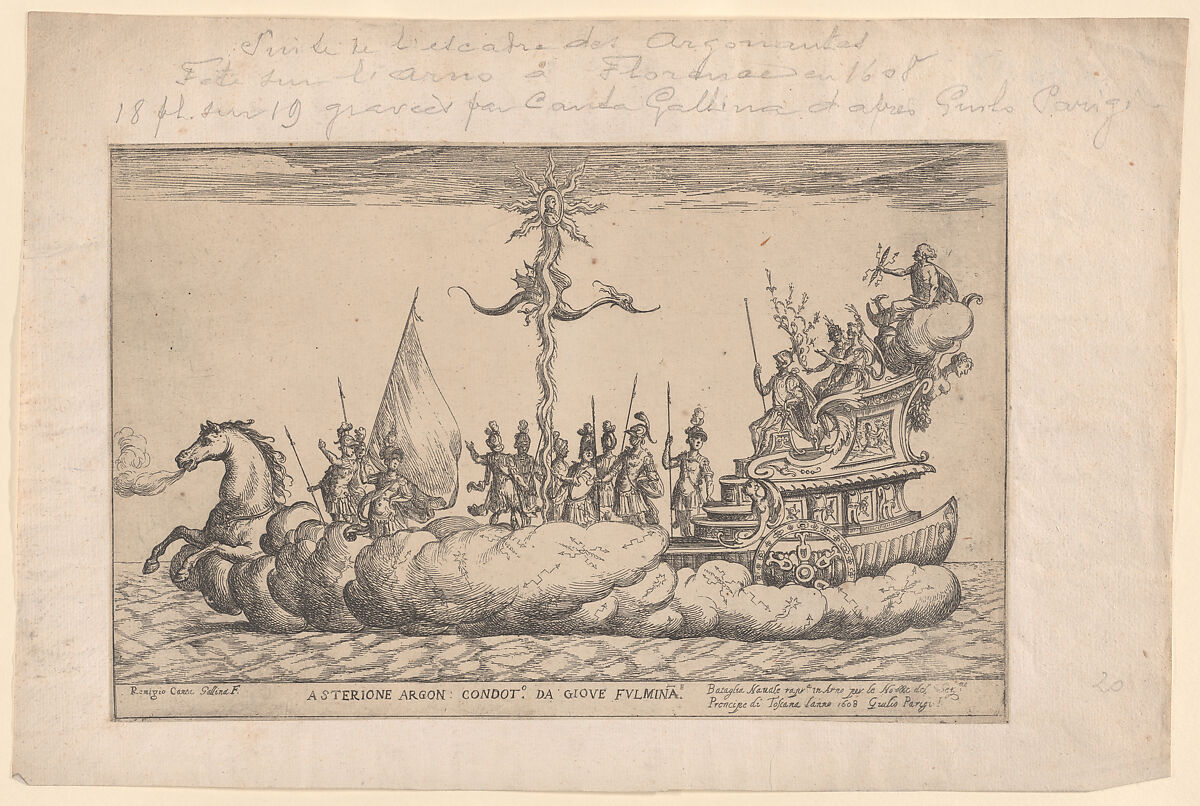 Suite de l'escadre des Argonautes
Fete sur l'Arno à Florence en 1608
18 pl. sur 19 gravées par Canta Gallina d'apres Giulo Parigi
Remigio Canta Gallina F.
ASTERIONE ARGON: CONDOT.º DA GIOVE FVLMINĀ.
Bataglia Nauale rapr.ta in Arno per le Nozze del Ser.mo
Prencipe di Toscana l'anno 1608 Giulio Parigi I.
20